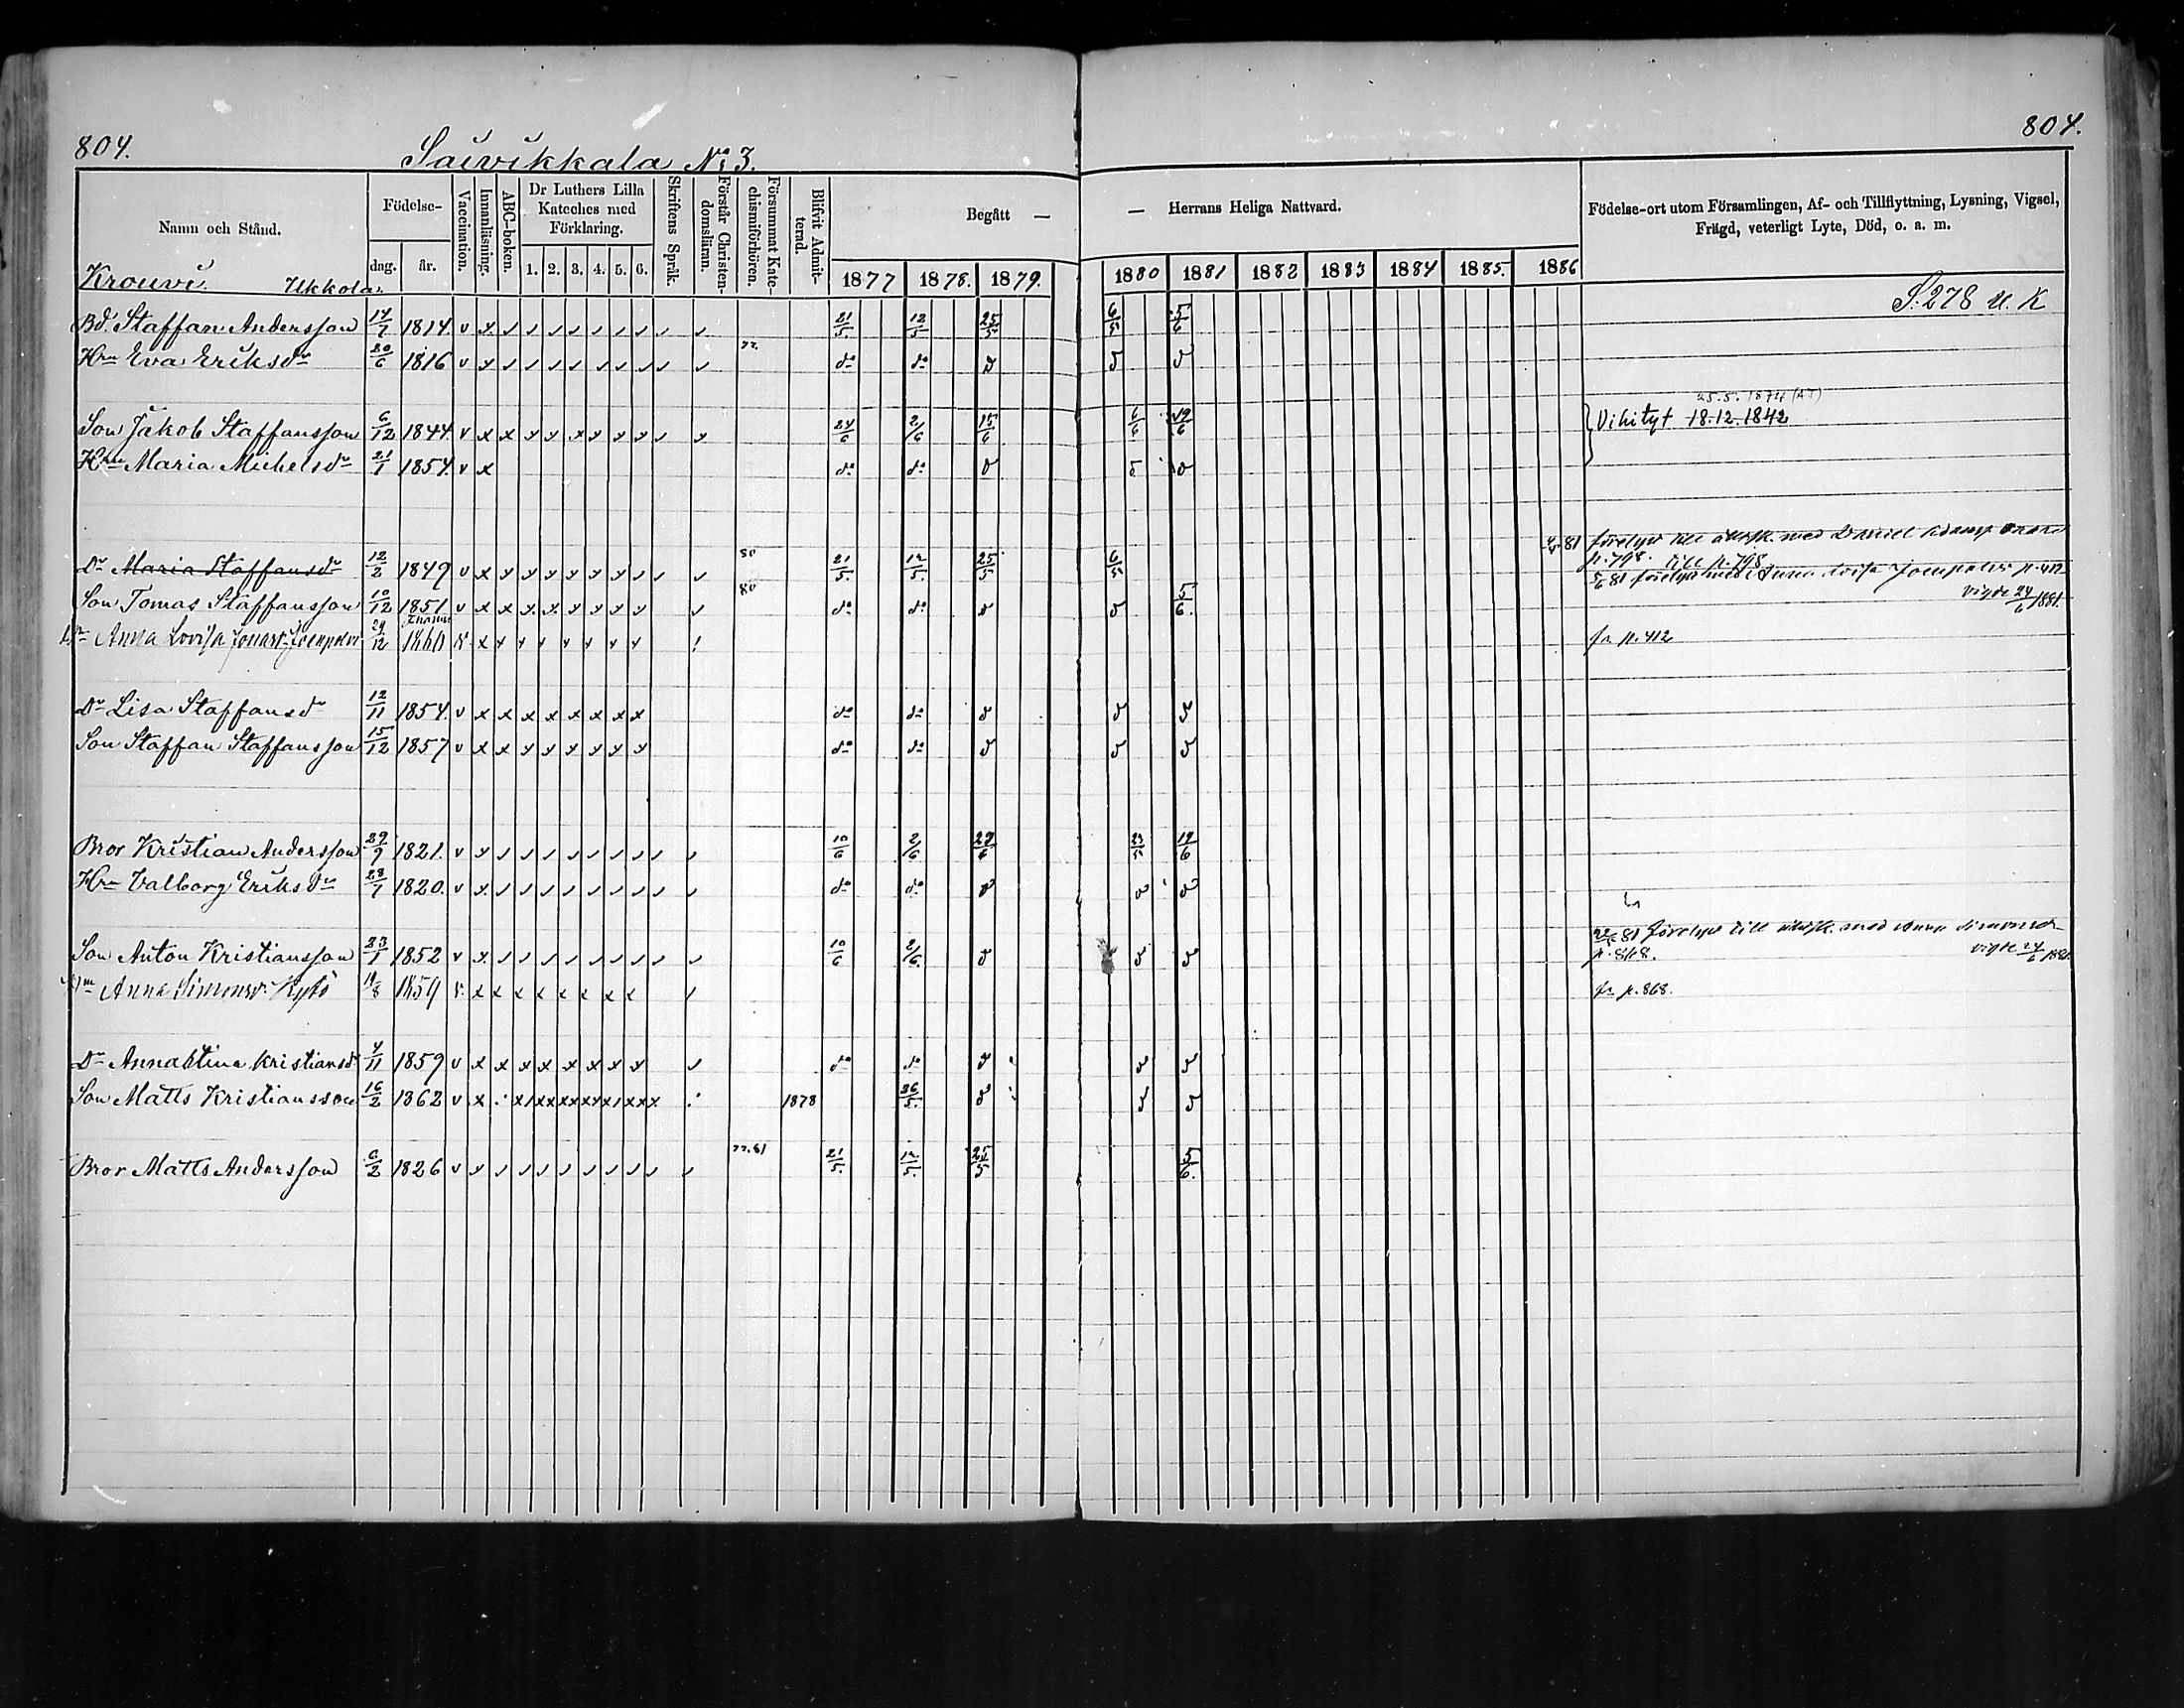 804.
804.
Säivikkala No 3.
Namn och Stånd.
Födelse-
dag.
år.
Vaccination.
Innanläsning.
ABC-boken.
Dr Luthers Lilla
Kateches med
Förklaring.
1. 2. 3. 4. 5. 6.
Skriftens Språk.
Förstår Christen-
domsläran.
Försummat Kate-
chismiförhören.
Blifvit Admit-
terad.
Begått —
— Herrans Heliga Nattvard.
1877 1878. 1879. 1880 1881 1882 1883 1884 1885. 1886
Födelse-ort utom Församlingen, Af- och Tillflyttning, Lysning, Vigsel,
Frägd, veterligt Lyte, Död, o. a. m.
Krouvi. Ukkola.
S. 278 U. K
Bd. Staffan Andersson 14/7 1814. v x 21/5. 12/5 25/5 6/5 5/6
77.
Hru Eva Eriksdr 20/6 1816 v x do do
25.5.1874 (AJ)
Son Jakob Staffansson 6/12 1844. v x x 24/6 2/6 15/6 6/6 19/6 Vihityt 18.12.1842
Hru Maria Michelsdr 21/1 1854. v x do do
80
Dr Maria Staffansdr 12/2 1849 v x 21/5. 12/5. 25/5 6/5 81 förelyst till äktsk. med Daniel
p. 798. till p. 798
80
5/6 81 förelyst med Anna Lovisa
Son Tomas Staffansson 10/12 1851 v x x do do 5/6. vigde 24/6 1881.
Hru Anna Lovisa Jonasdr 29/12 1860 v x fr p. 412
Dr Lisa Staffansdr 12/11 1854. v x x x x x x x x do do
Son Staffan Staffansson 15/12 1857 v x x do do
Bror Kristian Andersson 29/9 1821. v 10/6 2/6 29/6 19/6
Hru Valborg Eriksdr 28/1 1820. v x do do
22/5 81 förelyst till äktsk. med Anna Simonsdr
Son Anton Kristiansson 23/1 1852 v x 10/6 2/6. p. 868. vigde 24/6 1881
Hru Anna Simonsdr Kytö 11/8 1859 v x x x x x x x x fr p. 868.
Dr Annastina Kristiansdr 4/11 1859 v x x x x x x x x do do
Son Matts Kristiansson 16/2 1862 v x 1878 26/5.
77.81
Bror Matts Andersson 6/2 1826 v 21/5. 12/5. 25/5 5/6.